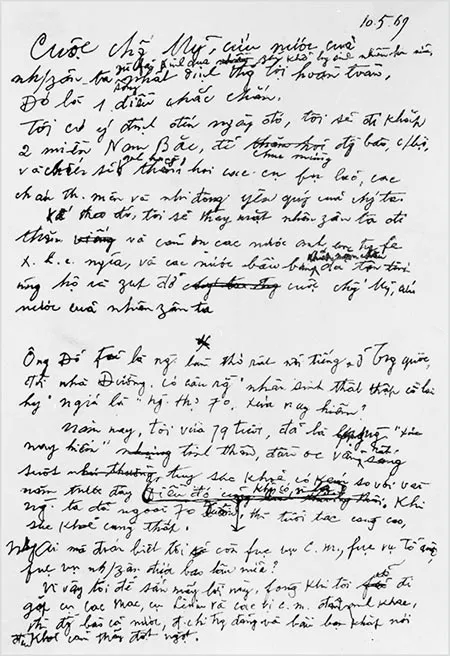 10.5.69
Cuộc chg Mỹ, cứu nước của
nh/zân ta, zù phải kinh qua gian khổ, hy sinh nhiều hơn nữa,
song nhất định thg lợi hoàn toàn.
Đó là 1 điều chắc chắn.
Tôi có ý định đến ngày đó, tôi sẽ đi khắp
2 miền Nam Bắc, để chúc mừng đg bào, c/bộ,
và chiến sĩ anh hùng; thăm hỏi các cụ fụ lão, các
cháu th. niên và nhi đồng yêu quý của chg ta.
Kế theo đó, tôi sẽ thay mặt nhân zân ta đi
thăm và cảm ơn các nước anh em trg fe
x. h. c. nghĩa, và các nước bầu bạn khắp năm châu đã tận tình
ủng hộ và zúp đỡ cuộc chg Mỹ, cứu
nước của nhân zân ta
Ông Đỗ Fủ là ng làm thơ rất nổi tiếng ở Trg quốc,
đời nhà Đường. Có câu rằng "nhân sinh thất thập cổ lai
hy" nghĩa là "ng. thọ 70, xưa nay hiếm".
Năm nay, tôi vừa 79 tuổi, đã là hạng ng "xưa
nay hiếm" tinh thần, đầu óc vẫn rất sáng
suốt, tuy sức khoẻ có kém so với vài
năm trước đây. Khi
ng. ta đã ngoài 70 xuân, thì tuổi tác càng cao,
sức khoẻ càng thấp.
Nhưng ai mà đoán biết tôi còn fục vụ c.m., fục vụ Tổ quốc,
fục vụ nh/zân được bao lâu nữa?
Vì vậy tôi để sẵn mấy lời này, fòng khi tôi sẽ đi
gặp cụ các Mác, cụ Lênin và các vị c.m. đàn anh khác,
thì đg bào cả nước, đ.chí trg đảng và bầu bạn khắp nơi
đều khỏi cảm thấy đột ngột.